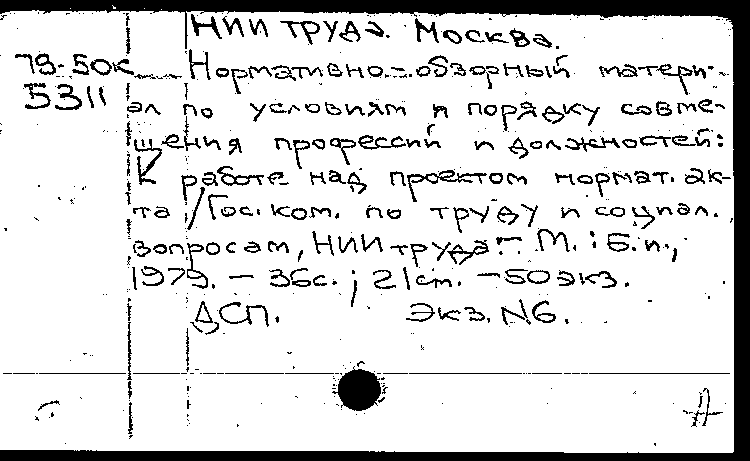 НИИ труда. Москва.
79-50к
5311
Нормативно-обзорный матери-
ал по условиям и порядку совме-
щения профессий и должностей:
К работе над проектом нормат. ак-
та / Гос. ком. по труду и социал.
вопросам, НИИ труда. - М.: Б.и.,
1979. - 36с.; 21см. - 50экз.
ДСП. Экз. N6.